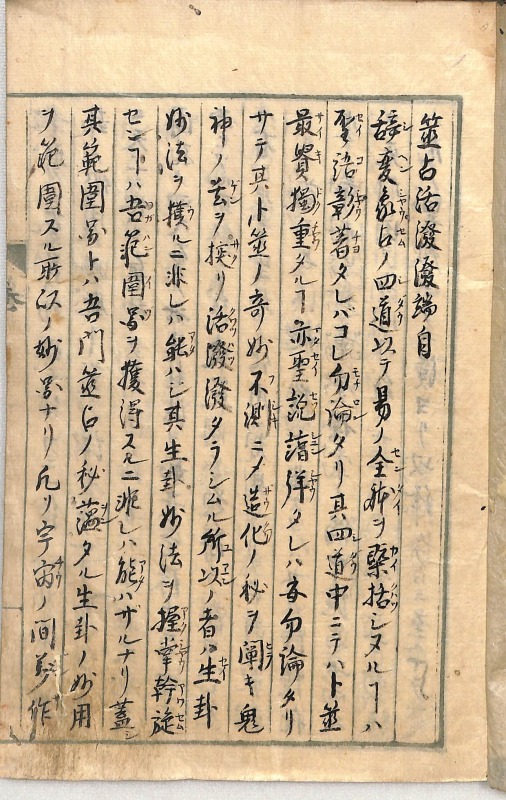 筮占活潑潑端自
辞変象占ノ四道以テ易ノ全体ヲ槩括シヌルヿハ
聖語彰著タレバコレ勿論タリ其四道中ニテハト筮
最貴獨重タルヿ亦聖説諸詳タレハ亦勿論タリ
サテ其卜筮ノ奇妙不測ニメ造化ノ秘ヲ闡キ鬼
神ノ玄ヲ探リ活潑潑タラシムル所以ノ者ハ生卦
妙法ヲ獲ルニ非レハ能ハシ其生卦妙法ヲ握掌斡旋
センヿハ吾範圍圖ヲ獲得スルニ非レハ能ハザルナリ蓋
其範圍圖トハ吾門筮占ノ秘蘊タル生卦ノ妙用
ヲ範圍スル所以ノ妙圖ナリ凡リ宇宙ノ間作